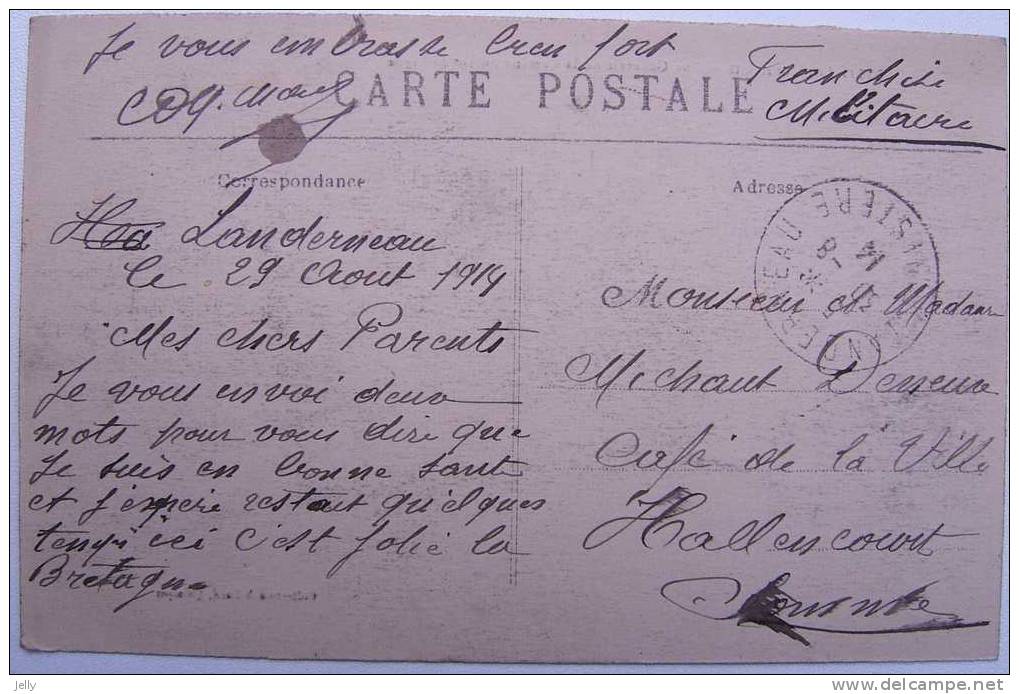 Je vous embrasse bien fort
CARTE POSTALE
Franchise
Militaire
Correspondance
Adresse
Landerneau
le 29 Aout 1914
Mes chers Parents
Je vous envoi deux
mots pour vous dire que
Je suis en bonne santé
et J'espere restant quelques
temps ici c'est Jolie la
Bretagne
Monsieur et Madame
Michaut
Café de la Ville
Hallencourt
Somme
LANDERNEAU FINISTERE
jelly
delcampe.net